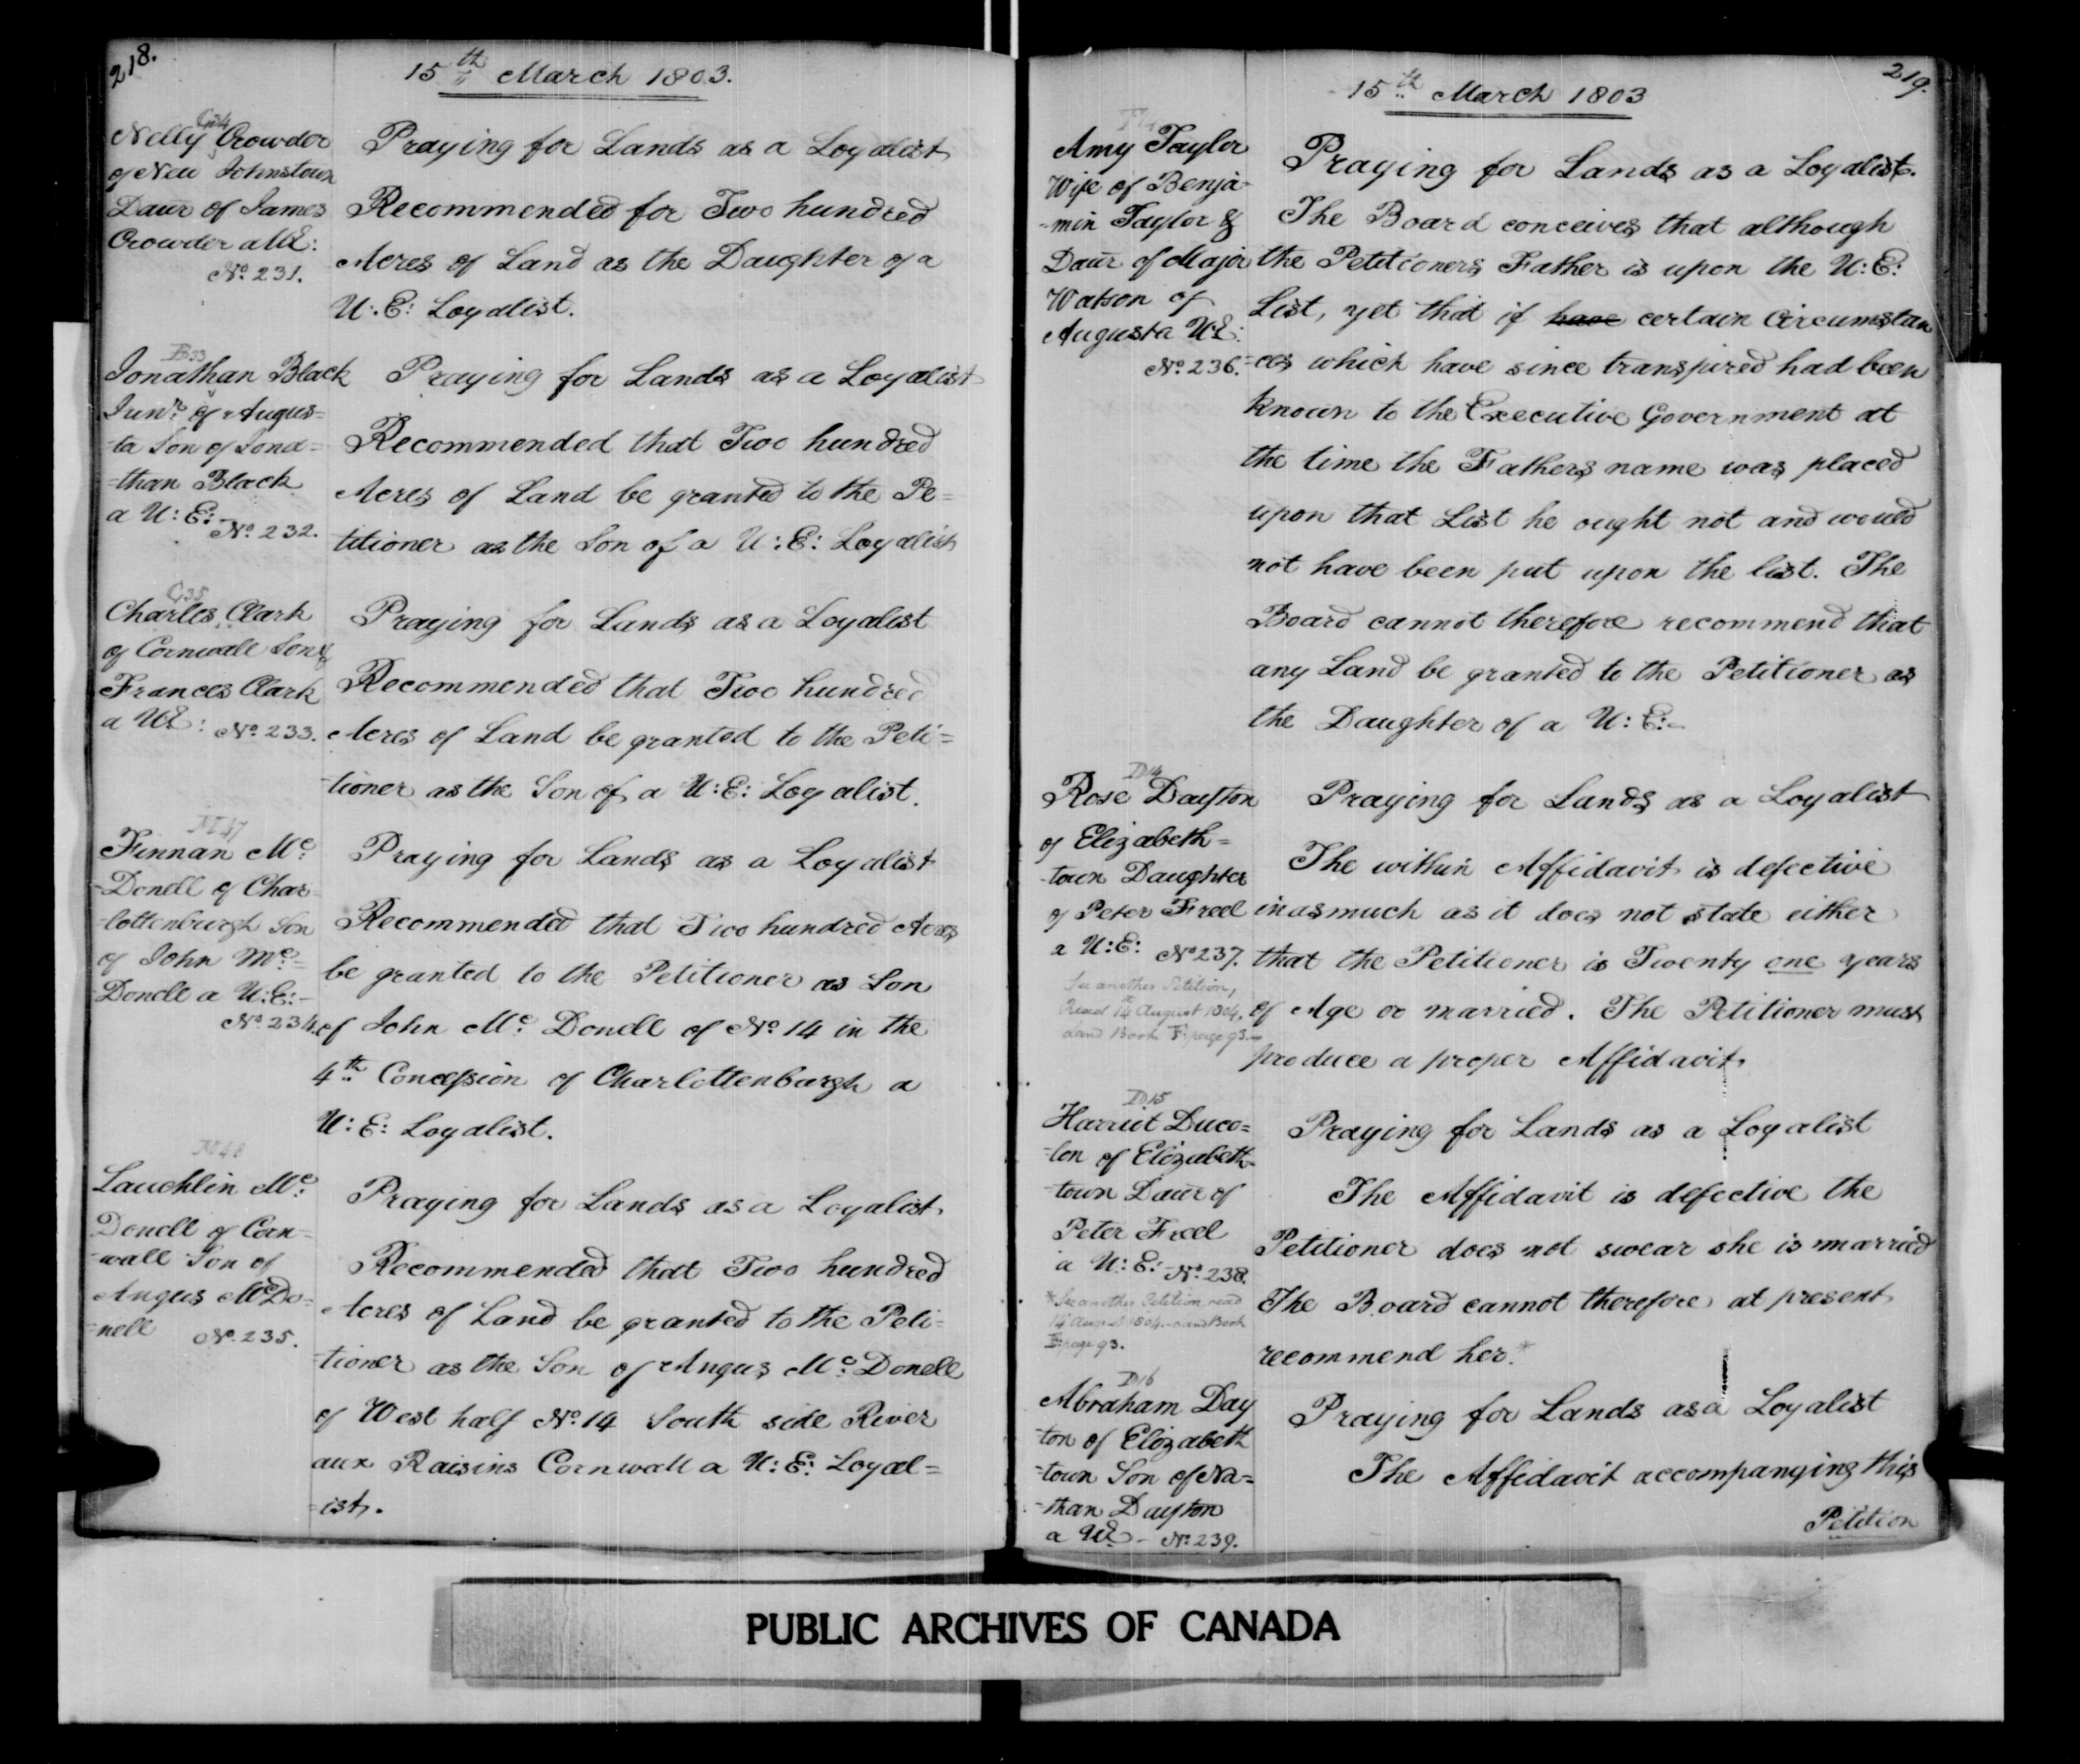 218.
15th March 1803.
C34
Nelly Crowder
of New Johnstown
Daur of James
Crowder a UE:
No. 231.
Praying for Lands as a Loyalist
Recommended for Two hundred
Acres of Land as the Daughter of a
U:E: Loyalist.
B33
Jonathan Black
Junr. of Augus=
=ta Son of Jona=
=than Black
a U:E:
No. 232.
Praying for Lands as a Loyalist
Recommended that Two hundred
Acres of Land be granted to the Pe=
titioner as the Son of a U:E: Loyalist
C35
Charles Clark
of Cornwall Son of
Frances Clark
a UE: No. 233.
Praying for Lands as a Loyalist
Recommended that Two hundred
Acres of Land be granted to the Peti=
=tioner as the Son of a U:E: Loyalist.
M47
Finnan Mc:
=Donell of Char=
=lottenburgh Son
of John Mc:=
=Donell a U:E:-
No. 234.
Praying for Lands as a Loyalist
Recommended that Two hundred Acres
be granted to the Petitioner as Son
of John Mc: Donell of No. 14 in the
4th Concession of Charlottenburgh a
U:E: Loyalist.
M48
Lauchlin Mc:
Donell of Corn=
=wall Son of
Angus McDo=
=nell No. 235.
Praying for Lands as a Loyalist.
Recommended that Two hundred
Acres of Land be granted to the Peti=
=tioner as the Son of Angus Mc: Donell
of West half No. 14 South side River
aux Raisins Cornwall a U:E: Loyal=
=ist.
219.
15th March 1803
Amy Taylor
Wife of Benja=
=min Taylor &
Daur of Major
Watson of
Augusta UE:
No. 236.
Praying for Lands as a Loyalist.
The Board conceives that although
the Petitioners Father is upon the U:E:
List, yet that if have certain Circumstan
=ces which have since transpired had been
known to the Executive Government at
the time the Fathers name was placed
upon that List he ought not and would
not have been put upon the list. The
Board cannot therefore recommend that
any Land be granted to the Petitioner as
the Daughter of a U:E:-
D14
Rose Dayton
of Elizabeth=
=town Daughter
of Peter Freel
a U:E: No. 237.
See another Petition,
Read 14th August 1804.
Land Book F: page 93.
Praying for Lands as a Loyalist
The within Affidavit is defective
inasmuch as it does not state either
that the Petitioner is Twenty one years
of Age or married. The Petitioner must
produce a proper Affidavit.
D15
Harriot Duco=
=lon of Elizabeth=
=town Daur of
Peter Freel
a U:E:- No. 238.
*See another Petition, read
14 August 1804.- Land Book
F: page 93.
Praying for Lands as a Loyalist
The Affidavit is defective the
Petitioner does not swear she is married
The Board cannot therefore at present
recommend her.*
D16
Abraham Day
=ton of Elizabeth
=town Son of Na=
=than Dayton
a UE - No. 239.
Praying for Lands as a Loyalist
The Affidavit accompanying this
Petition
PUBLIC ARCHIVES OF CANADA